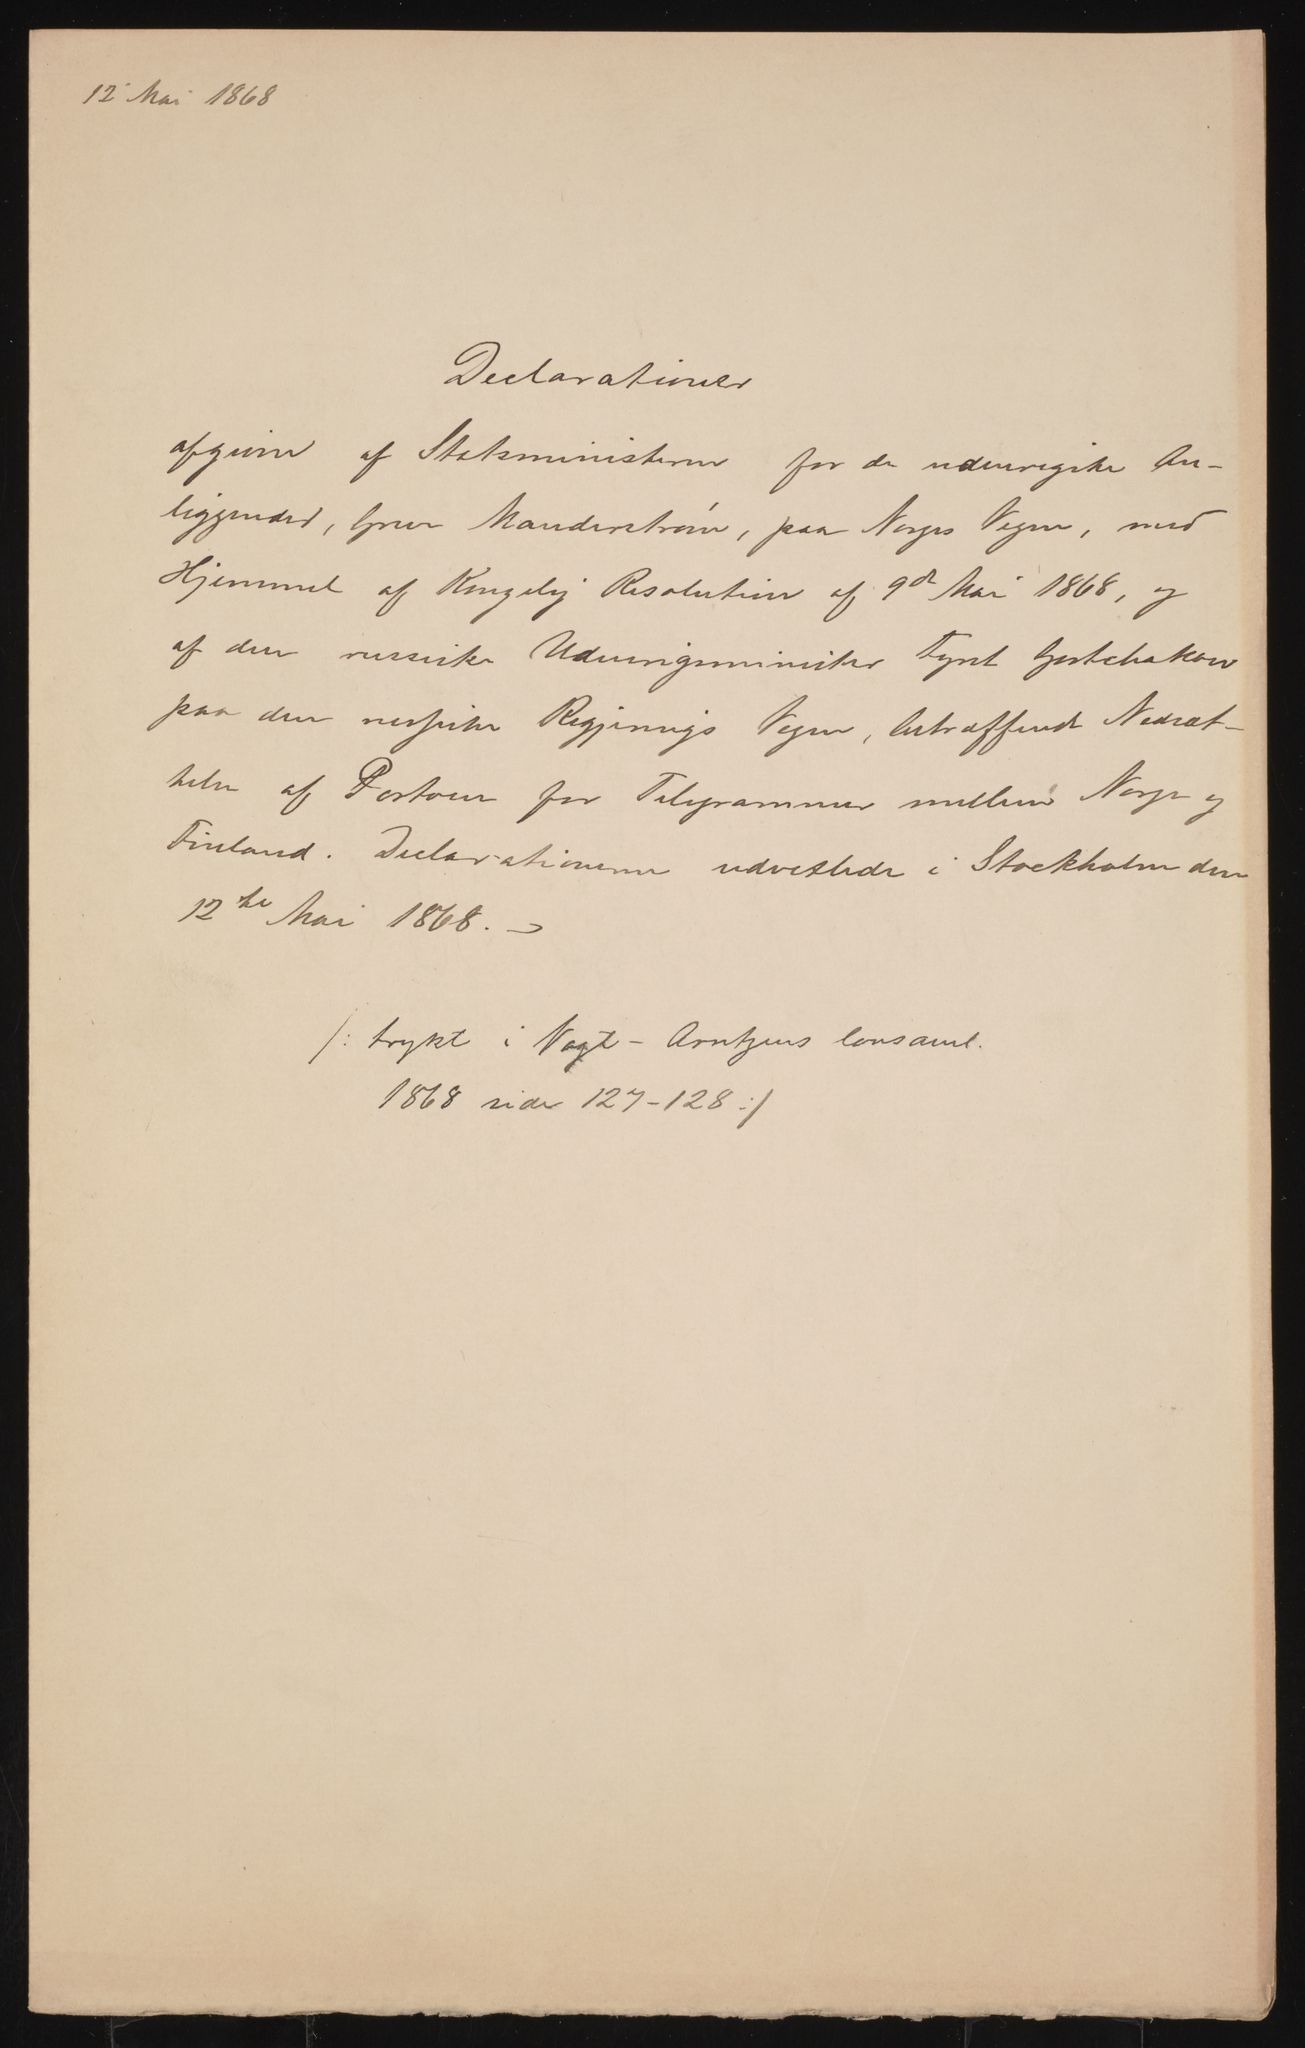 12 Mai 1868
Declarationer
afgivne af Statsministeren for de udenrigske An-
liggender, Grev Manderström, paa Norges Vegne, med
Hjemmel af Kongelig Resolution af 9de Mai 1868, og
af den russiske Udenrigsminister Fyrst Gortchakow
paa den russiske Regjerings Vegne, betræffende Nedsæt-
telse af Portoen for Telegrammer mellem Norge og
Finland. Declarationerne udvexlede i Stockholm den
12te Mai 1868.
/: trykt i Vogt - Arntzens lovsaml.
1868 side 127-128 :/